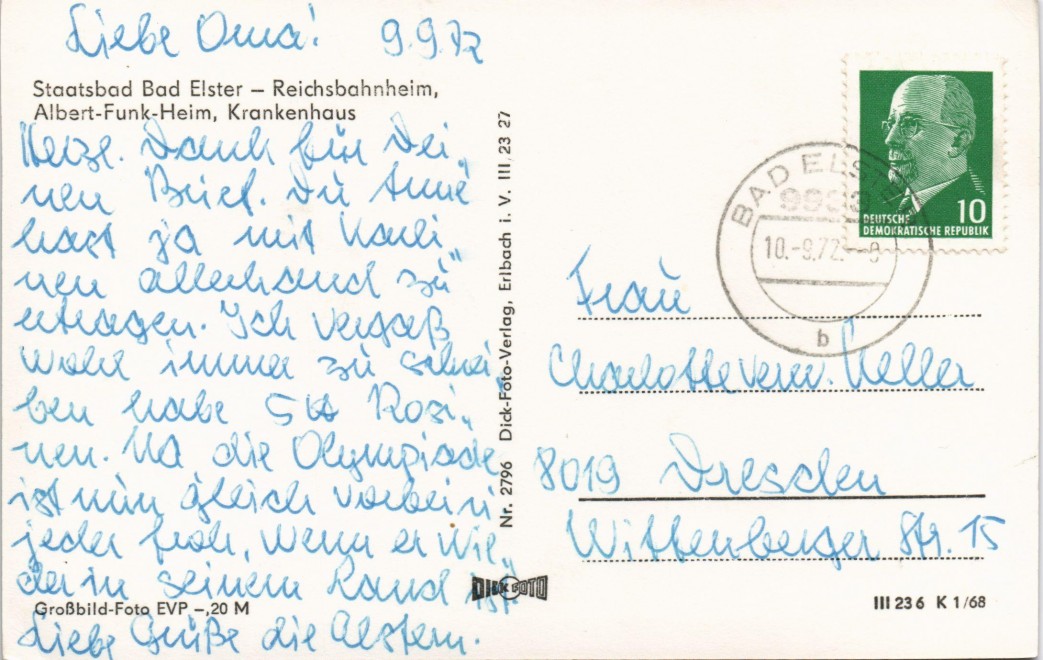 Liebe Oma! 9.9.72
Staatsbad Bad Elster – Reichsbahnheim,
Albert-Funk-Heim, Krankenhaus
Herzl. Dank für Dei„
nen Brief. Du Arme
hast ja mit
nen allerhand zu
ertragen. Ich vergaß
wohl immer zu schrei„
ben habe Rosi„
nen. Na die Olympiade
ist nun gleich vorbei u
jeder froh, wenn er wie„
der in seinem Land ist.
Großbild-Foto EVP –,20 M
Liebe Grüße die Elstern.
Nr. 2796 Dick-Foto-Verlag, Erlbach i. V. III, 23 27
DICK FOTO
BAD ELSTER
9933
10.-9.72.-8
b
DEUTSCHE
DEMOKRATISCHE REPUBLIK
10
Frau
Charlotte verw. Keller
8019 Dresden
Wittenberger Str. 15
III 23 6 K 1/68